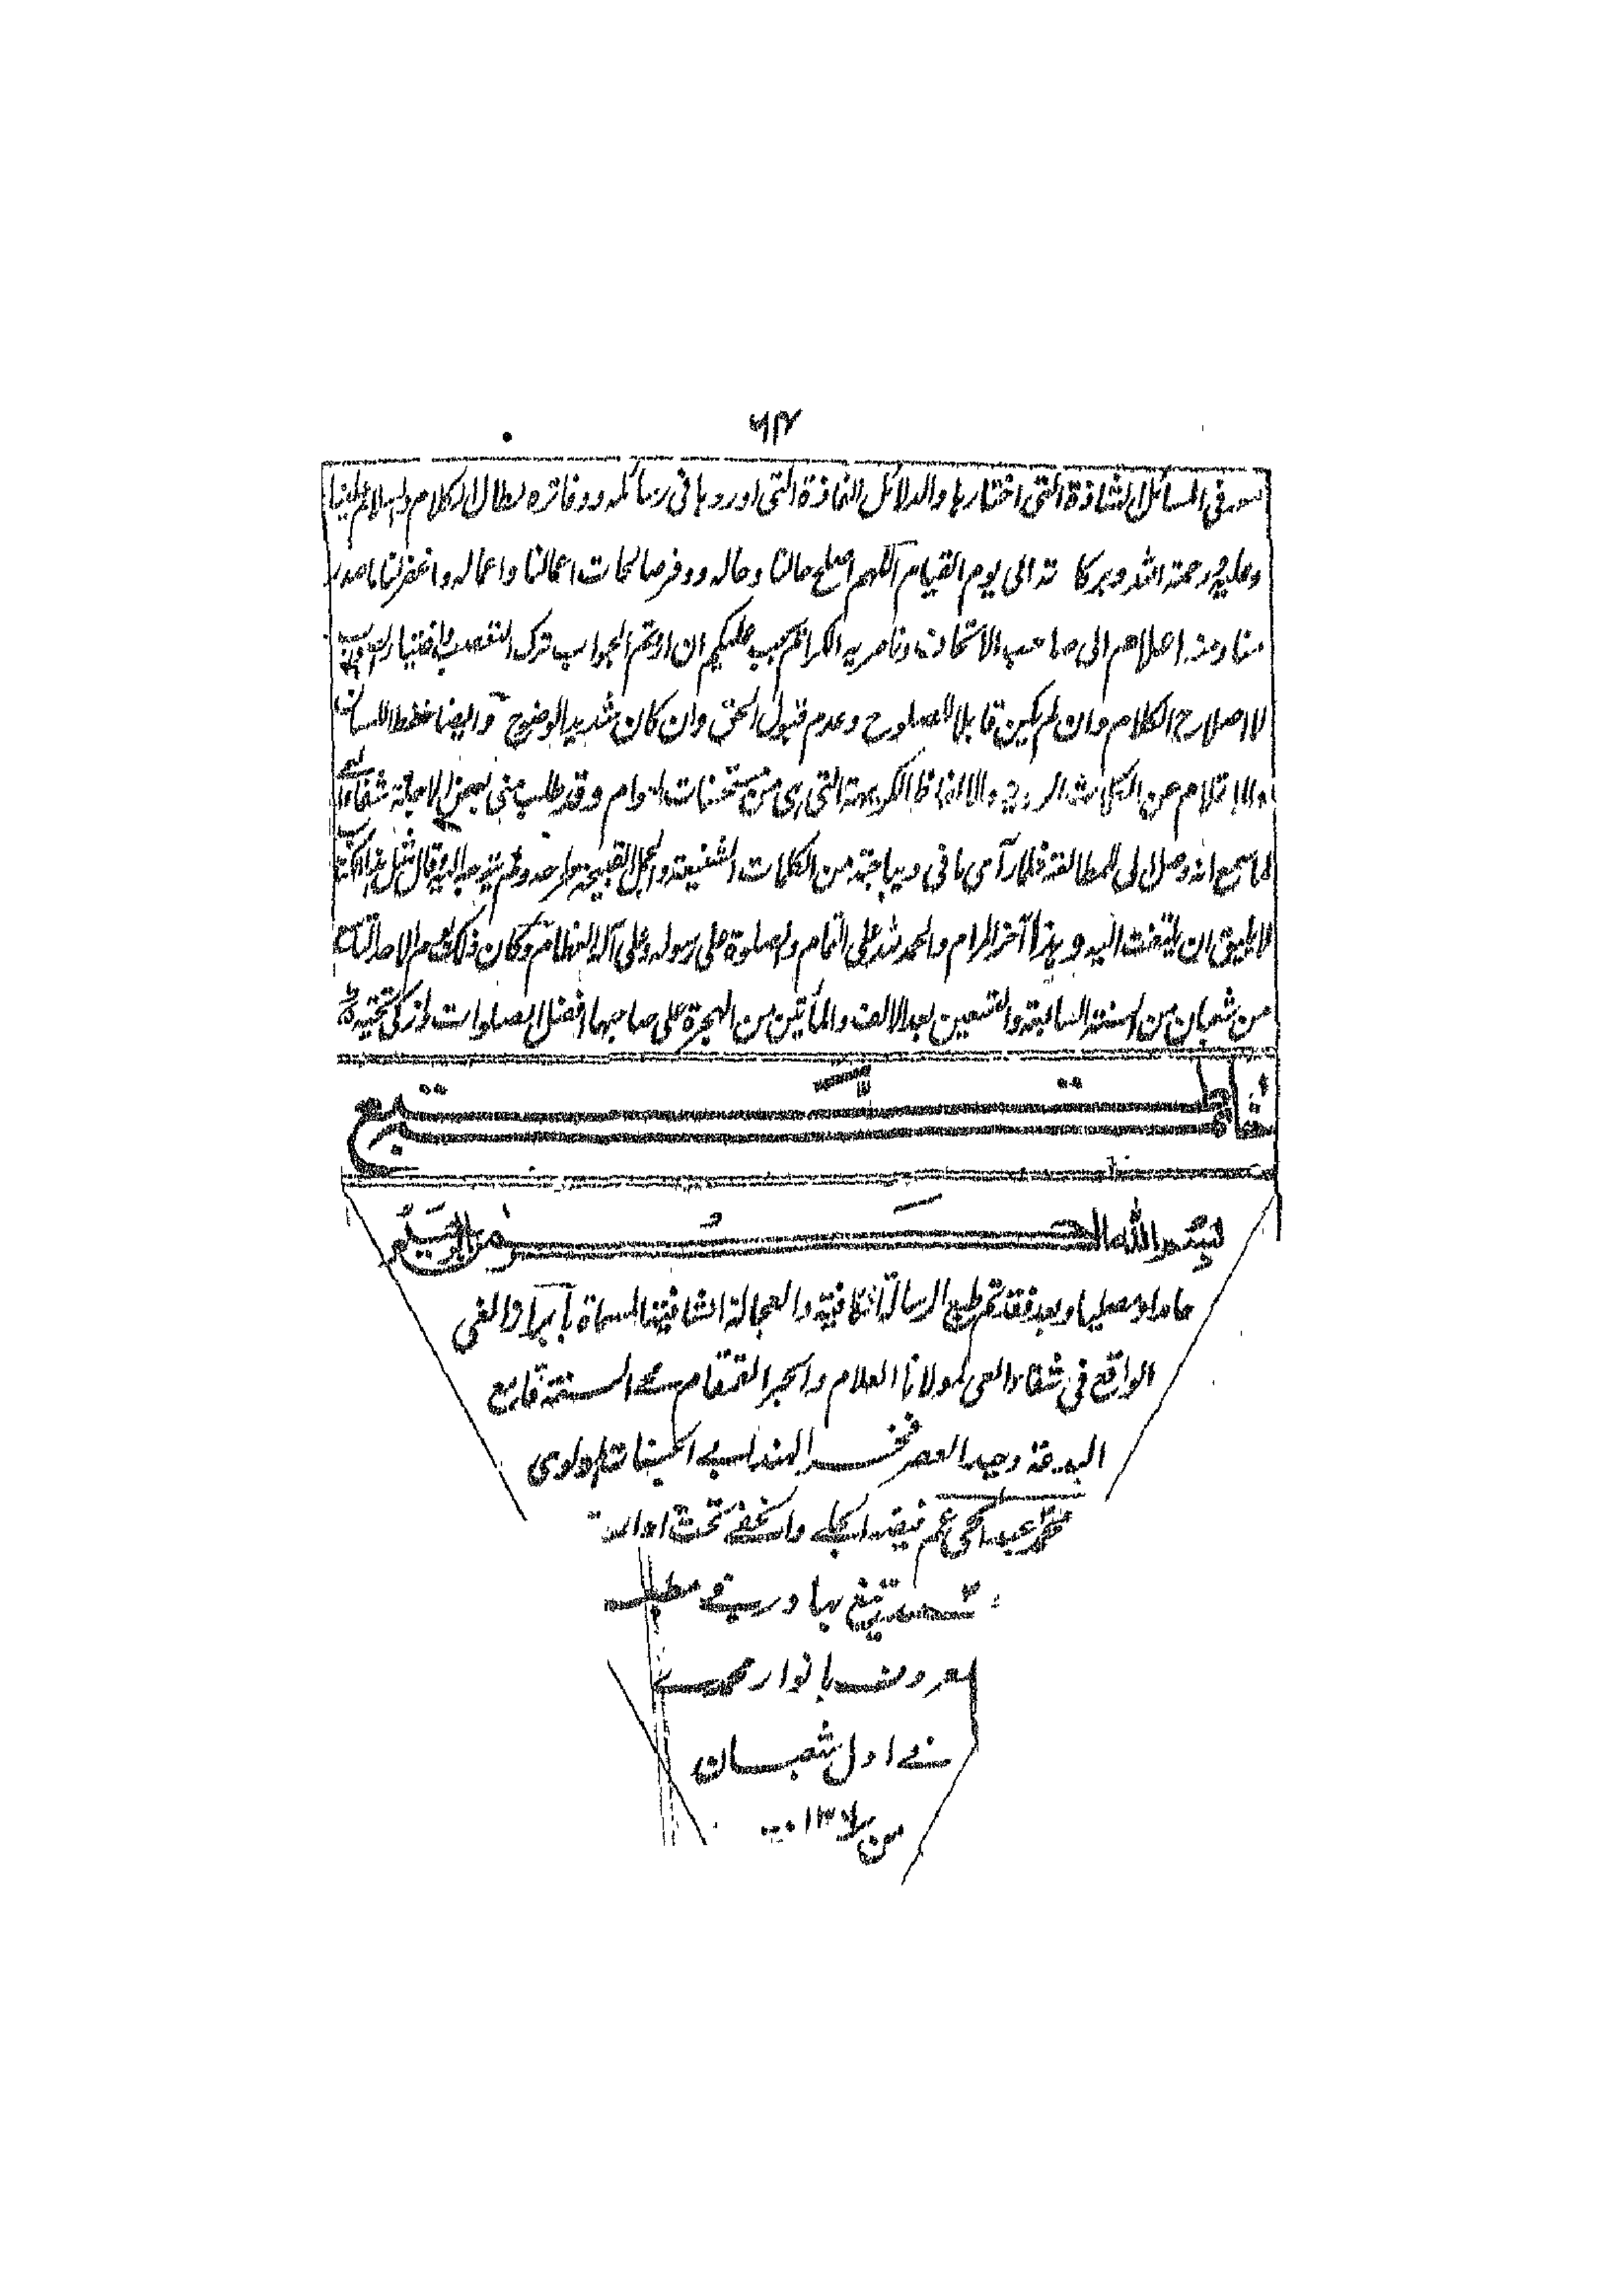 ۶۴
في المسائل الشاذة التي اختارها والدلائل الفاذة التي اوردها في رسائله ودفاتره لطال الكلام والسلام علينا
وعليه رحمة الله وبركاته الى يوم القيام اللهم اصلح حالنا وحاله ووفر صالحات اعمالنا واعماله واغفر لنا ما صدر
منا ومنه اعلام الى صاحب الاتحاف وناصريه الكرام يجب عليكم ان اردتم الجواب ترك التعصب واختيار
لا اصلاح الكلام وان لم يكن قابلا للصلوح وعدم قبول الحق وان كان شديد الوضوح وايضا حفظ اللسان
والاقلام عن الكلمات الردية والالفاظ الكريهة التي هي من مستحسنات العوام وقد طلب مني بعض الاجلة شفاء العي
لما سمع انه وصل الي للمطالعة فلما رآى ما في ديباجته من الكلمات الشنيعة والجمل القبيحة طرحه ولم يتوجه اليه وقال مثل هذا
لا يليق ان يلتفت اليه وهذا آخر المرام والحمد لله على التمام والصلوة على رسوله وعلى آله العظام وكان ذلك يوم الاحد
من شعبان من السنة السابعة والتسعين بعد الالف والمأتين من الهجرة على صاحبها افضل الصلوات وازكى تحية
خاتمة الطبع
بسم الله الرحمن الرحيم
حامدا ومصليا وبعد فقد تم طبع الرسالة الكافية والعجالة الشافية المسماة بابراز الغي
الواقع في شفاء العي لمولانا العلام والحبر القمقام محي السنة قامع
البدعة وحيد العصر فخر الهند ابي الحسنات المولوي
محمد عبد الحي عم فيضه الجلي والخفي تحت ادارة
محمد تيغ بهادر في مطبعه
المعروف بانوار محمدي
في اول شعبان
من ۱۳۰